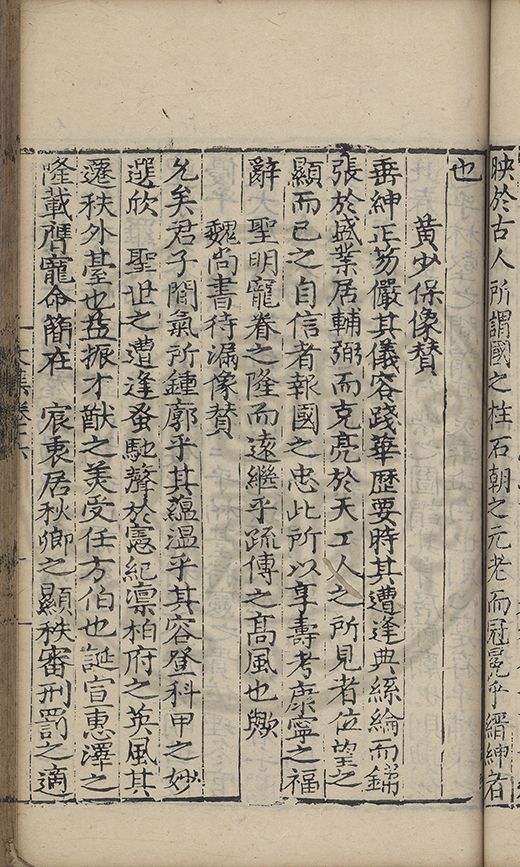 映於古人所謂國之柱石朝之元老而冠冕乎縉紳者
也
黃少保像贊
垂紳正笏儼其儀容踐華歷要時其遭逢典絲綸而鋪
張於盛業居輔弼而克亮於天工人之所見者位望之
顯而已之自信者報國之忠此所以享壽考康寧之福
辭大聖明寵眷之隆而遠繼乎疏傅之髙風也歟
魏尚書待漏像贊
允矣君子間氣所鍾廓乎其藴溫乎其容登科甲之妙
選欣 聖世之遭逢蚤馳聲於憲紀凛柏府之英風其
遷秩外臺也益振才猷之美受任方伯也誕宣惠澤之
隆載膺寵命簡在 宸衷居秋卿之顯秩審刑罰之適